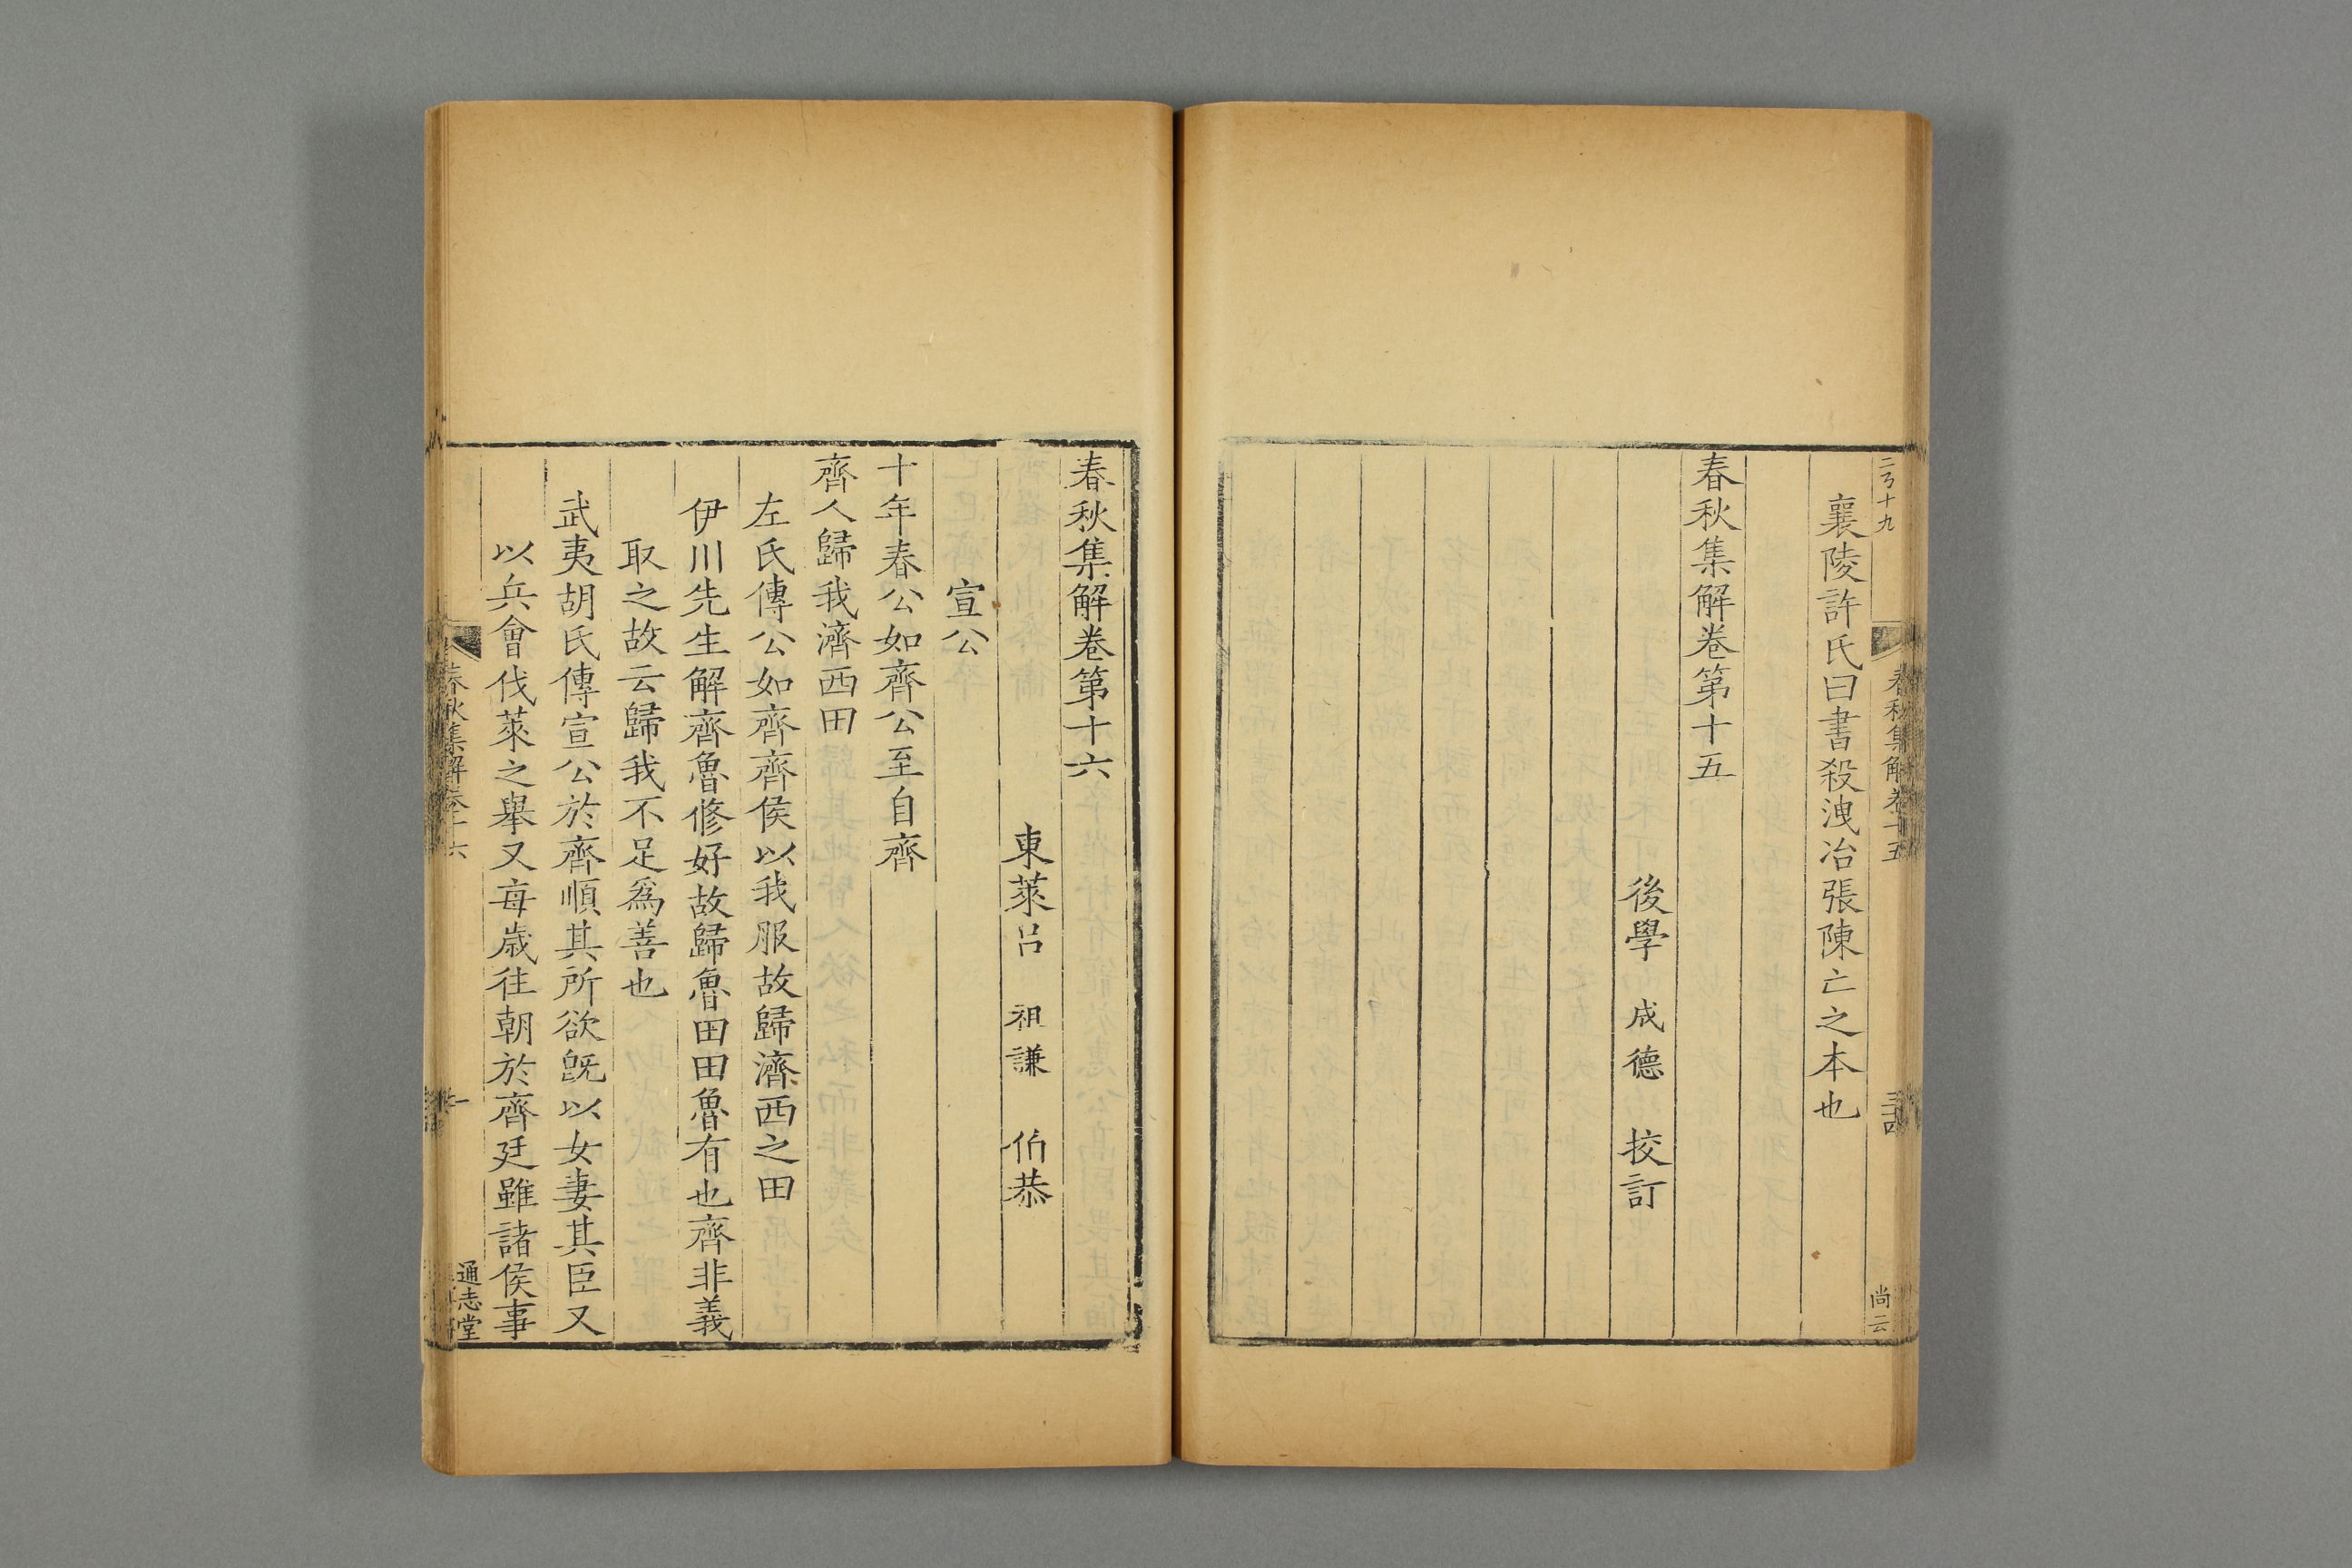 二丂十九
春秋集解卷十五
三十四
尚云
襄陵許氏曰書殺洩冶張陳亡之本也
春秋集解卷第十五
後學 成德 挍訂
春秋集解卷第十六
東萊呂 祖謙 伯恭
宣公
十年春公如齊公至自齊
齊人歸我濟西田
左氏傳公如齊齊侯以我服故歸濟西之田
伊川先生解齊魯修好故歸魯田田魯有也齊非義
取之故云歸我不足爲善也
武夷胡氏傳宣公於齊順其所欲旣以女妻其臣又
以兵會伐萊之舉又每歲往朝於齊廷雖諸侯事
春秋集解卷十六
一
通志堂